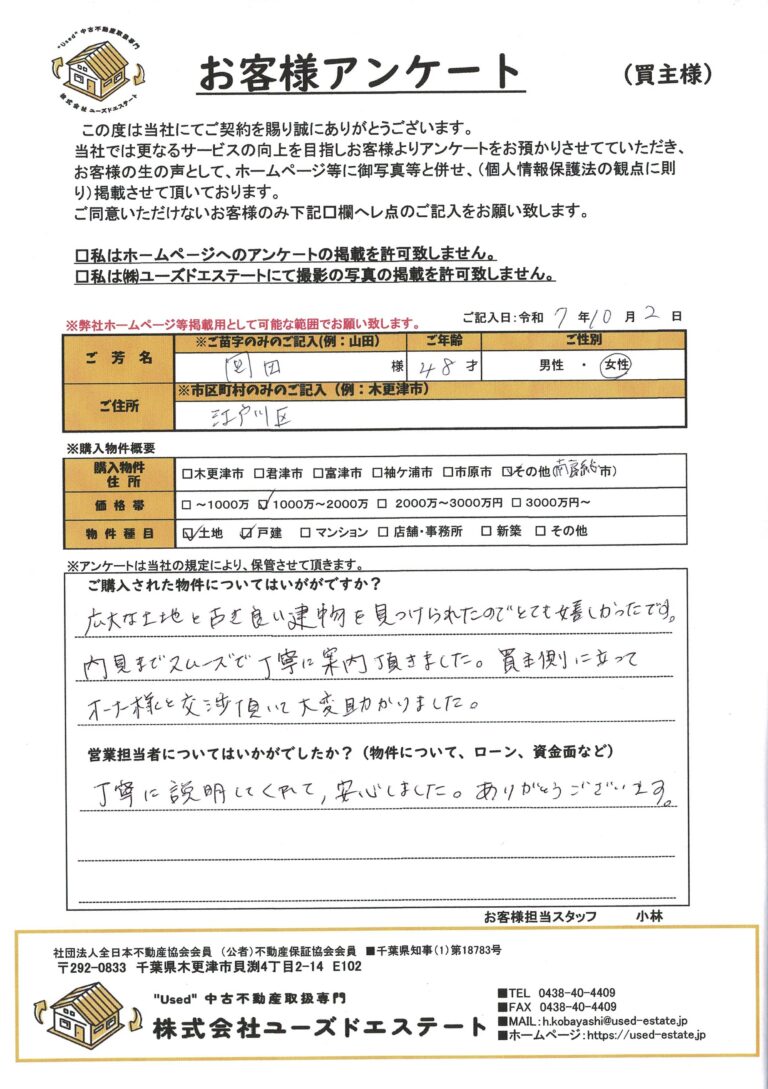 "Used" 中古不動産取扱専門
株式会社ユーズドエステート
お客様アンケート
（買主様）
この度は当社にてご契約を賜り誠にありがとうございます。
当社では更なるサービスの向上を目指しお客様よりアンケートをお預かりさせてていただき、
お客様の生の声として、ホームページ等に御写真等と併せ、（個人情報保護法の観点に則
り）掲載させて頂いております。
ご同意いただけないお客様のみ下記口欄へレ点のご記入をお願い致します。
□私はホームページへのアンケートの掲載を許可致しません。
□私は㈱ユーズドエステートにて撮影の写真の掲載を許可致しません。
ご記入日：令和 7 年 10 月 2 日
※弊社ホームページ等掲載用として可能な範囲でお願い致します。
ご芳名 ※ご苗字のみのご記入（例：山田） ご年齢 ご性別
田 様 48 才 男性 ・ 女性
ご住所 ※市区町村のみのご記入（例：木更津市）
江戸川区
※購入物件概要
購入物件住所 □木更津市 □君津市 □富津市 □袖ケ浦市 □市原市 ☑その他（南房総市）
価格帯 □～1000万 ☑1000万～2000万 □ 2000万～3000万円 □3000万円～
物件種目 ☑土地 ☑戸建 □マンション □店舗・事務所 □新築 □その他
※アンケートは当社の規定により、保管させて頂きます。
ご購入された物件についてはいががですか？
広大な土地と古き良い建物を見つけられたのでとても嬉しかったです。
内見までスムーズで丁寧に案内頂きました。買主側に立って
オーナー様と交渉頂いて大変助かりました。
営業担当者についてはいかがでしたか？（物件について、ローン、資金面など）
丁寧に説明してくれて、安心しました。ありがとうございます。
お客様担当スタッフ 小林
社団法人全日本不動産協会会員 （公者）不動産保証協会会員 ■千葉県知事（1）第18783号
〒292-0833 千葉県木更津市貝渕4丁目2-14 E102
"Used" 中古不動産取扱専門
株式会社ユーズドエステート
■TEL 0438-40-4409
■FAX 0438-40-4409
■MAIL：h.kobayashi@used-estate.jp
■ホームページ：https://used-estate.jp